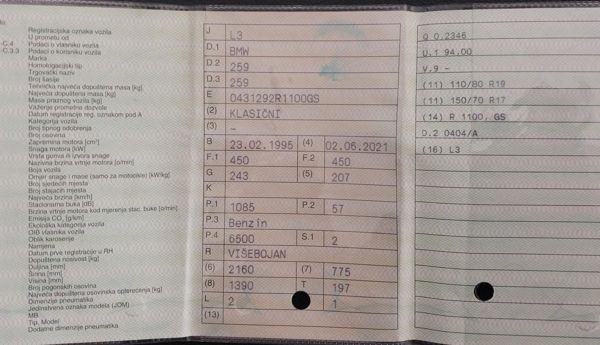 Registracijska oznaka vozila
U prometu od
C.4 Podaci o vlasniku vozila
C.3.3 Podaci o korisniku vozila
Marka
Homologacijski tip
Trgovački naziv
Broj šasije
Tehnička najveća dopuštena masa [kg]
Najveća dopuštena masa [kg]
Masa praznog vozila [kg]
Važenje prometne dozvole
Datum registracije reg. oznakom pod A
Kategorija vozila
Broj tipnog odobrenja
Broj osovina
Zapremina motora [cm³]
Snaga motora [kW]
Vrsta goriva ili izvora snage
Nazivna brzina vrtnje motora [o/min]
Boja vozila
Omjer snage i mase (samo za motocikle) [kW/kg]
Broj sjedećih mjesta
Broj stajaćih mjesta
Najveća brzina [km/h]
Stacionarna buka [dB]
Brzina vrtnje motora kod mjerenja stac. buke [o/min]
Emisija CO₂ [g/km]
Ekološka kategorija vozila
OIB vlasnika vozila
Oblik karoserije
Namjena
Datum prve registracije u RH
Dopuštena nosivost [kg]
Duljina [mm]
Širina [mm]
Visina [mm]
Broj pogonskih osovina
Najveća dopuštena osovinska opterećenja [kg]
Dimenzije pneumatika
Jedinstvena oznaka modela (JOM)
MB
Tip, Model
Dodatne dimenzije pneumatika
J L3
D.1 BMW
D.2 259
D.3 259
E 0431292R1100GS
(2) KLASIČNI
(3) –
B 23.02.1995 (4) 02.06.2021
F.1 450 F.2 450
G 243 (5) 207
K
P.1 1085 P.2 57
P.3 Benzin
P.4 6500 S.1 2
R VIŠEBOJAN
(6) 2160 (7) 775
(8) 1390 T 197
L 2 1
(13)
Q 0.2346
U.1 94.00
V.9 –
(11) 110/80 R19
(11) 150/70 R17
(14) R 1100, GS
D.2 0404/A
(16) L3